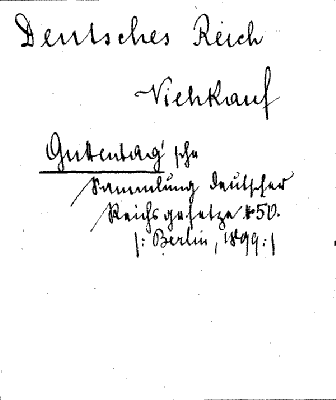 Deutsches Reich
Viehkauf
Guttentag'sche
Sammlung deutscher
Reichsgesetze № 50.
|: Berlin, 1899 :|